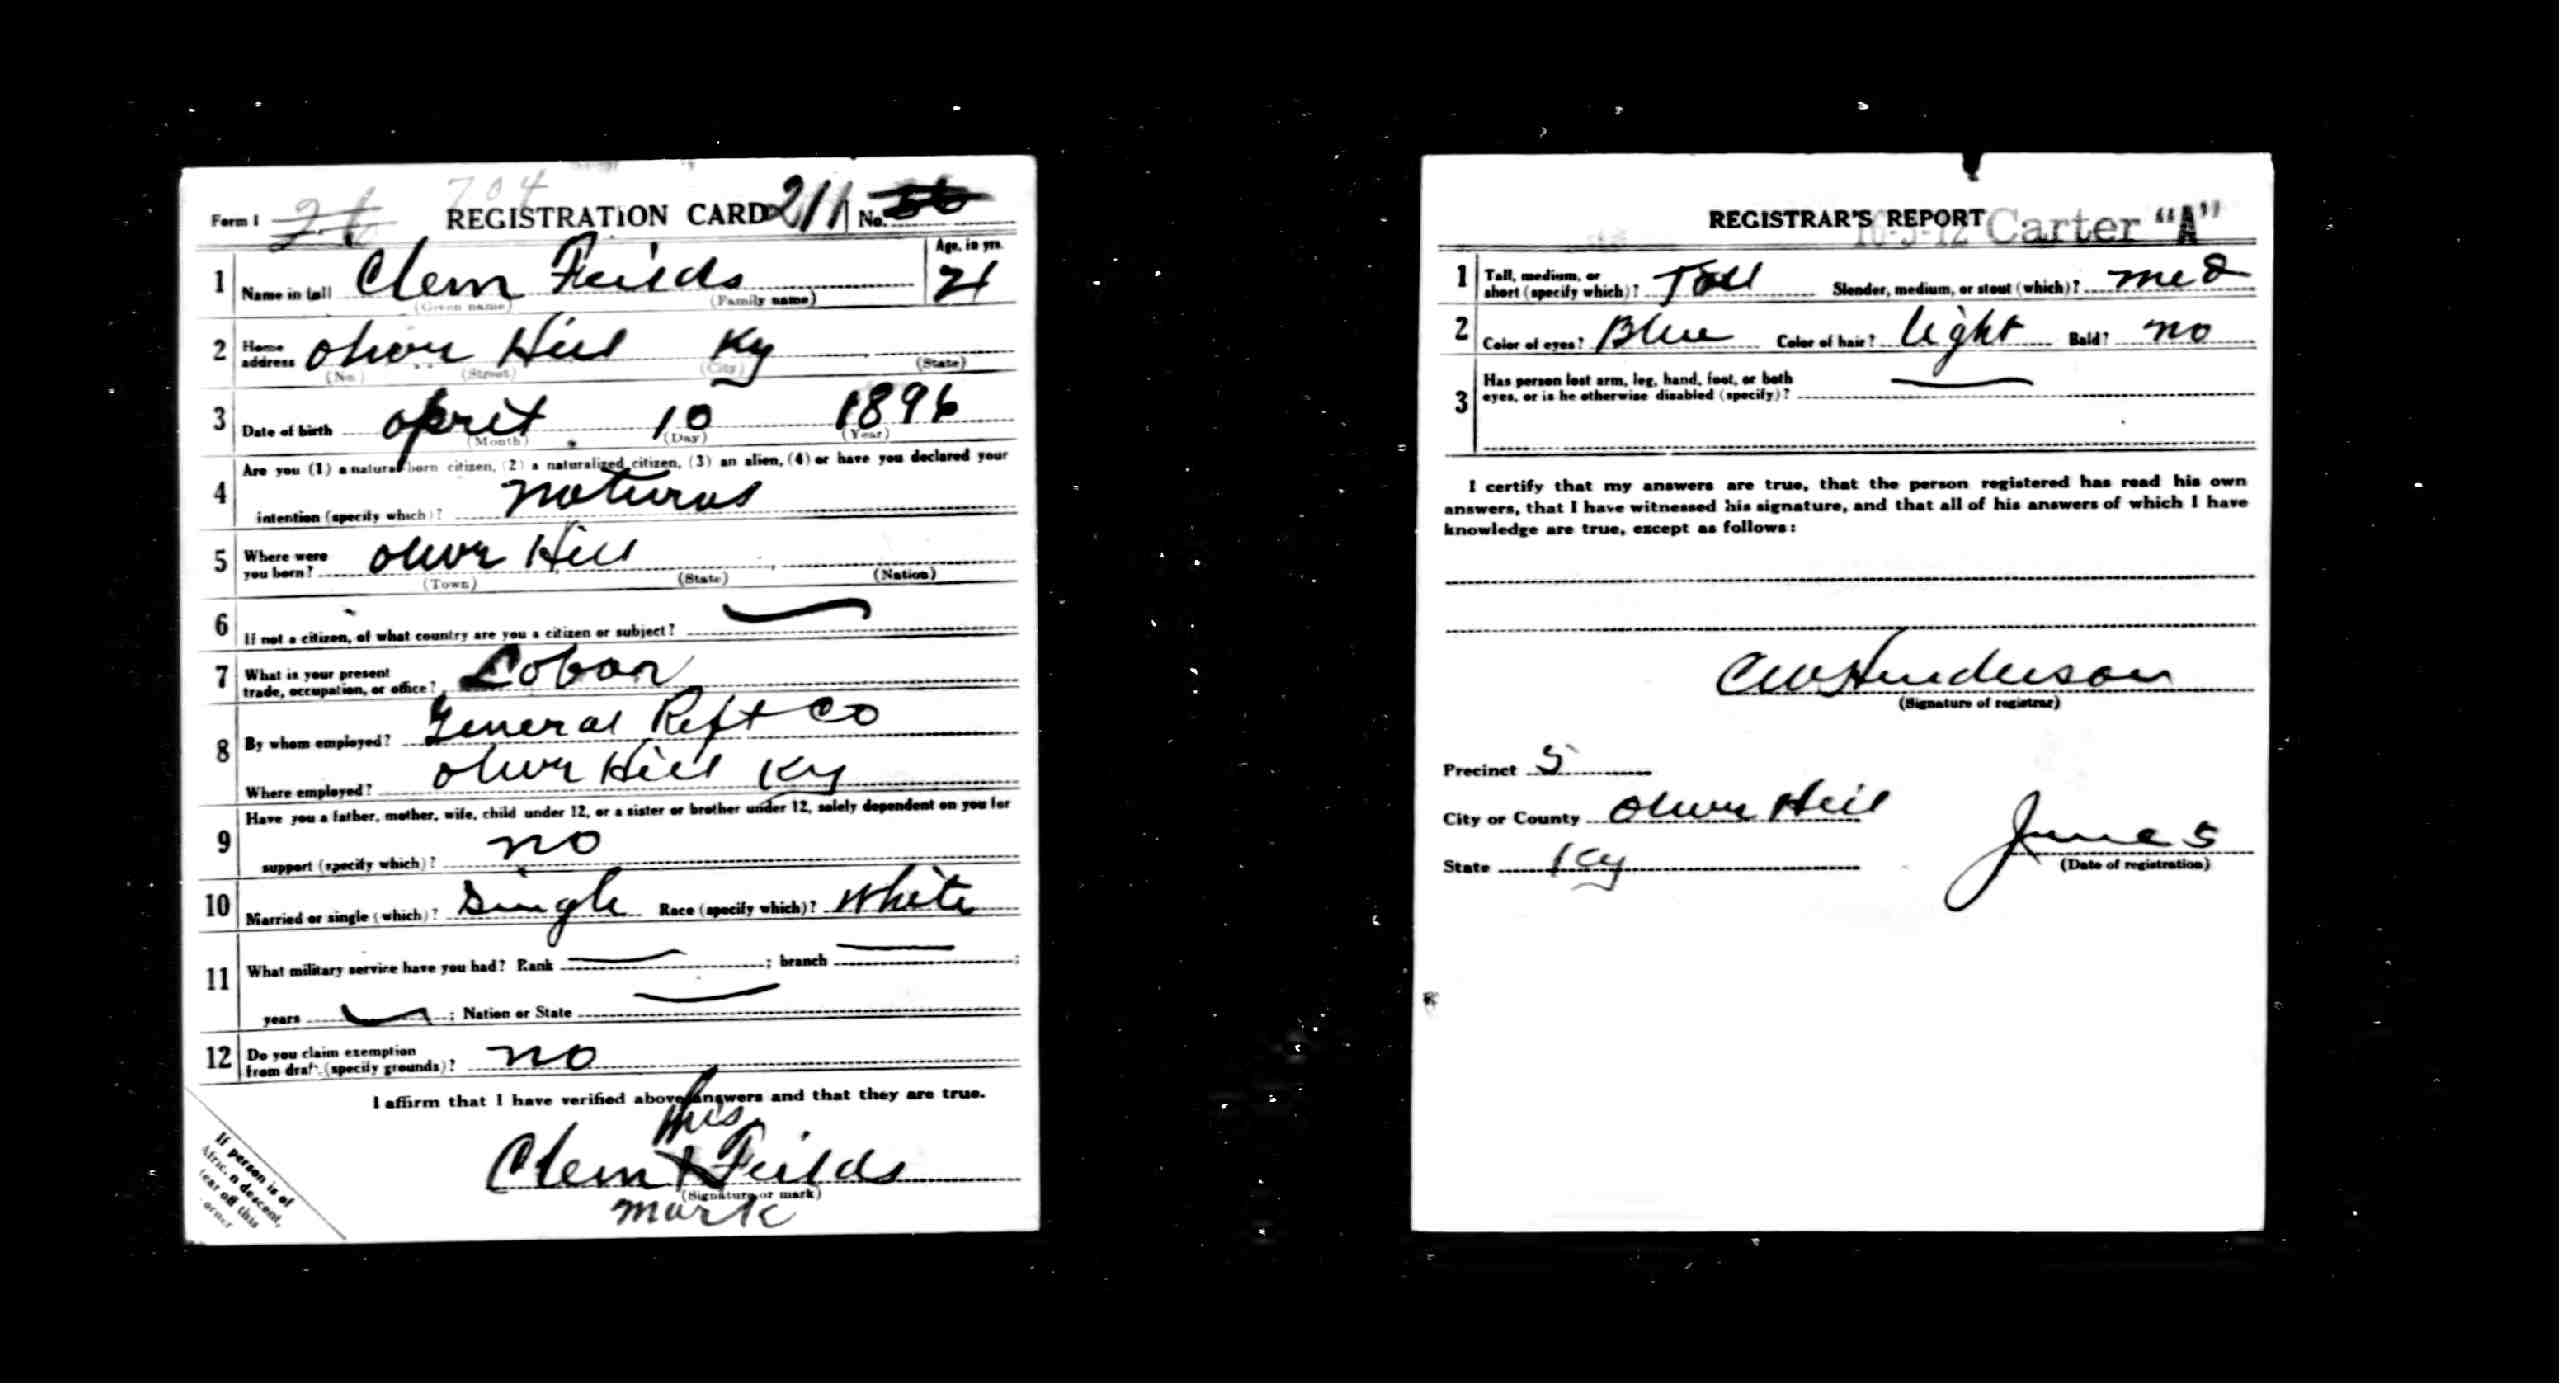 704
Form 1 REGISTRATION CARD 211 No. 36
Age, in yrs.
1 Name in full Clem Feilds 21
(Given name) (Family name)
2 Home address Olivr Hill Ky
(No.) (Street) (City) (State)
3 Date of birth April 10 1896
(Month) (Day) (Year)
Are you (1) a natural-born citizen, (2) a naturalized citizen, (3) an alien, (4) or have you declared your
4 intention (specify which)? natural
5 Where were you born? Olivr Hill
(Town) (State) (Nation)
6 If not a citizen, of what country are you a citizen or subject?
7 What is your present trade, occupation, or office? Labor
8 By whom employed? General Reft Co
Where employed? Olivr Hill Ky
Have you a father, mother, wife, child under 12, or a sister or brother under 12, solely dependent on you for
9 support (specify which)? no
10 Married or single (which)? Single Race (specify which)? White
11 What military service have you had? Rank ; branch ;
years ; Nation or State
12 Do you claim exemption from draft (specify grounds)? no
I affirm that I have verified above answers and that they are true.
his
Clem X Feilds
(Signature or mark)
mark
If person is of
African descent,
tear off this
corner
REGISTRAR'S REPORT
16-3-12 Carter "A"
1 Tall, medium, or short (specify which)? Tall Slender, medium, or stout (which)? med
2 Color of eyes? Blue Color of hair? light Bald? no
3 Has person lost arm, leg, hand, foot, or both eyes, or is he otherwise disabled (specify)?
I certify that my answers are true, that the person registered has read his own
answers, that I have witnessed his signature, and that all of his answers of which I have
knowledge are true, except as follows:
CW Henderson
(Signature of registrar)
Precinct 5
City or County Olivr Hill
State Ky
June 5
(Date of registration)